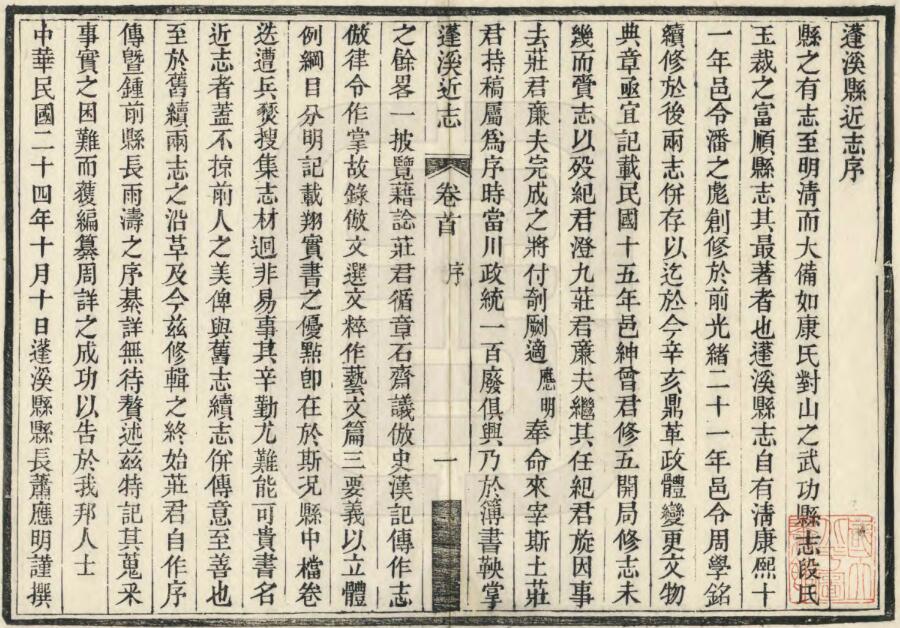 蓬溪縣近志序
縣之有志至明淸而大備如康氏對山之武功縣志段氏
玉裁之富順縣志其最著者也蓬溪縣志自有淸康熙十
一年邑令潘之彪創修於前光緖二十一年邑令周學銘
續修於後兩志併存以迄於今辛亥鼎革政體變更文物
典章亟宜記載民國十五年邑紳曾君修五開局修志未
幾而賫志以歿紀君澄九莊君㢘夫繼其任紀君旋因事
去莊君㢘夫完成之將付剞劂適應明奉命來宰斯土莊
君持稿屬爲序時當川政統一百廢俱興乃於簿書鞅掌
蓬溪近志 卷首 序 一
之餘畧一披覽藉諗莊君循章石齋議倣史漢記傳作志
倣律令作掌故錄倣文選文粹作藝文篇三要義以立體
例綱目分明記載翔實書之優點卽在於斯况縣中檔卷
迭遭兵燹搜集志材迴非易事其辛勤尤難能可貴書名
近志者蓋不掠前人之美俾與舊志續志併傳意至善也
至於舊續兩志之沿革及今兹修輯之終始莊君自作序
傳暨鍾前縣長雨濤之序綦詳無待贅述兹特記其蒐釆
事實之困難而獲編纂周詳之成功以告於我邦人士
中華民國二十四年十月十日蓬溪縣縣長蕭應明謹撰